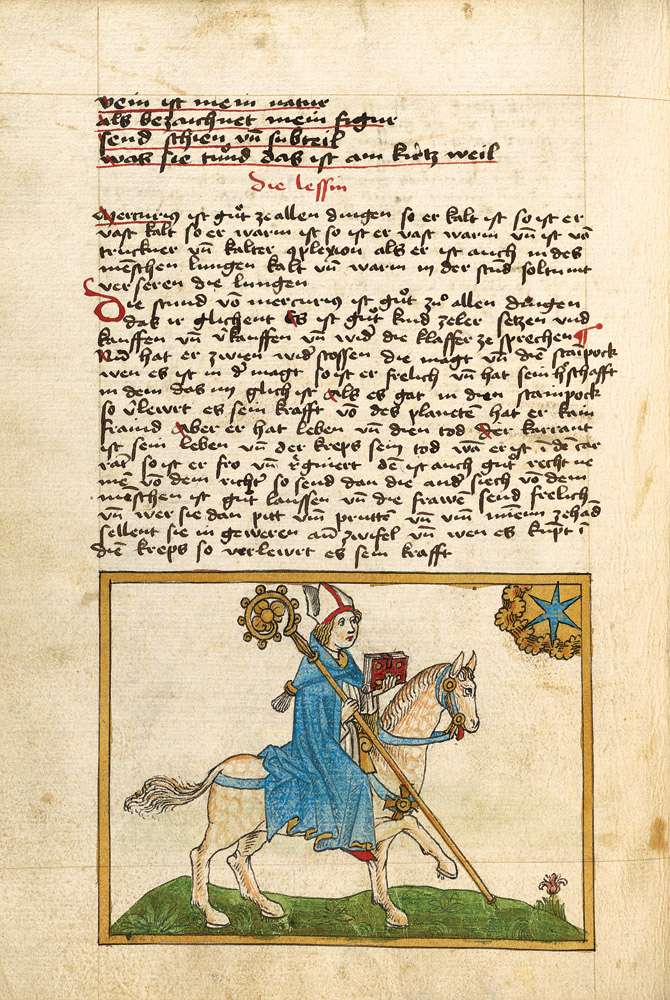 vein ist mein natur
als bezaichnet mein figur
send schien vn̄ subteil
was sie tůnd das ist am kürtz weil
die lessin
Mercurius ist gůt ze allen dingen so er kalt ist so ist er
vast kalt so er warm ist so ist er vast warm vn̄ ist vō
truckner vn̄ kalter 9plexion als er ist auch in des
mēschen lungen kalt vn̄ warm in der stūd soltu nit
verseren die lungen
Die stund vō mercurius ist gůt zů allen dingen
das ir glichent Es ist gůt kind zeler setzen vnd
kauffen vn̄ v̄kauffen vn̄ wid' die klaffer ze sprechen
Nū hat er zwien wid'stossen die magt vn̄ diē stainpock
wen es ist in d' magt so ist er frelich vn̄ hat sein h'schafft
in dem das im glich ist als es gat in dien stainpock
so v̄leurt es sein krafft vō des planctē hat er kain
fraind Aber er hat leben vn̄ dien tod der karrant
ist sein leben vn̄ der kreps sein tod wā er ist ī dē car
rāt so ist er fro vn̄ r̄gniert dē ist auch gůt recht ne
mē vō dem richt' so send dan die and siech vō dem
mēschen ist gůt laussen vn̄ die frawē send frelich
vn̄ wer sie dan pitt vm̄ pruttē vn̄ vm̄ zehād
sellent sie in geweren an̄ zwifel vn̄ wen es kūpt ī
diē kreps so verleurt es sein krafft